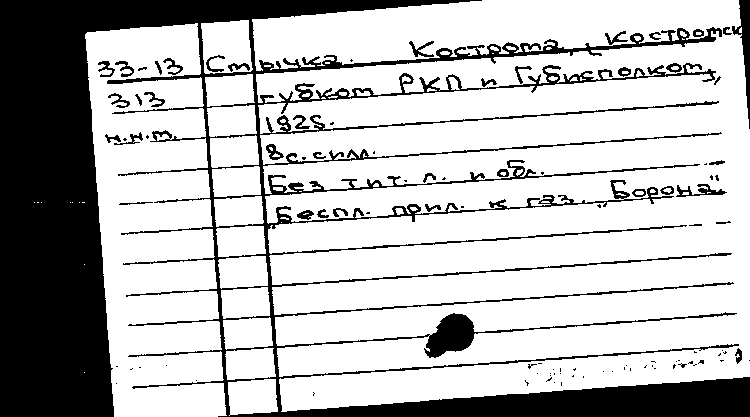 33-13 Стычка. Кострома, Костромск
313 губком РКП и Губисполком,
н.н.т. 1925.
8с. илл.
Без тит. л. и обл.
"Беспл. прил. к газ. „Борона"